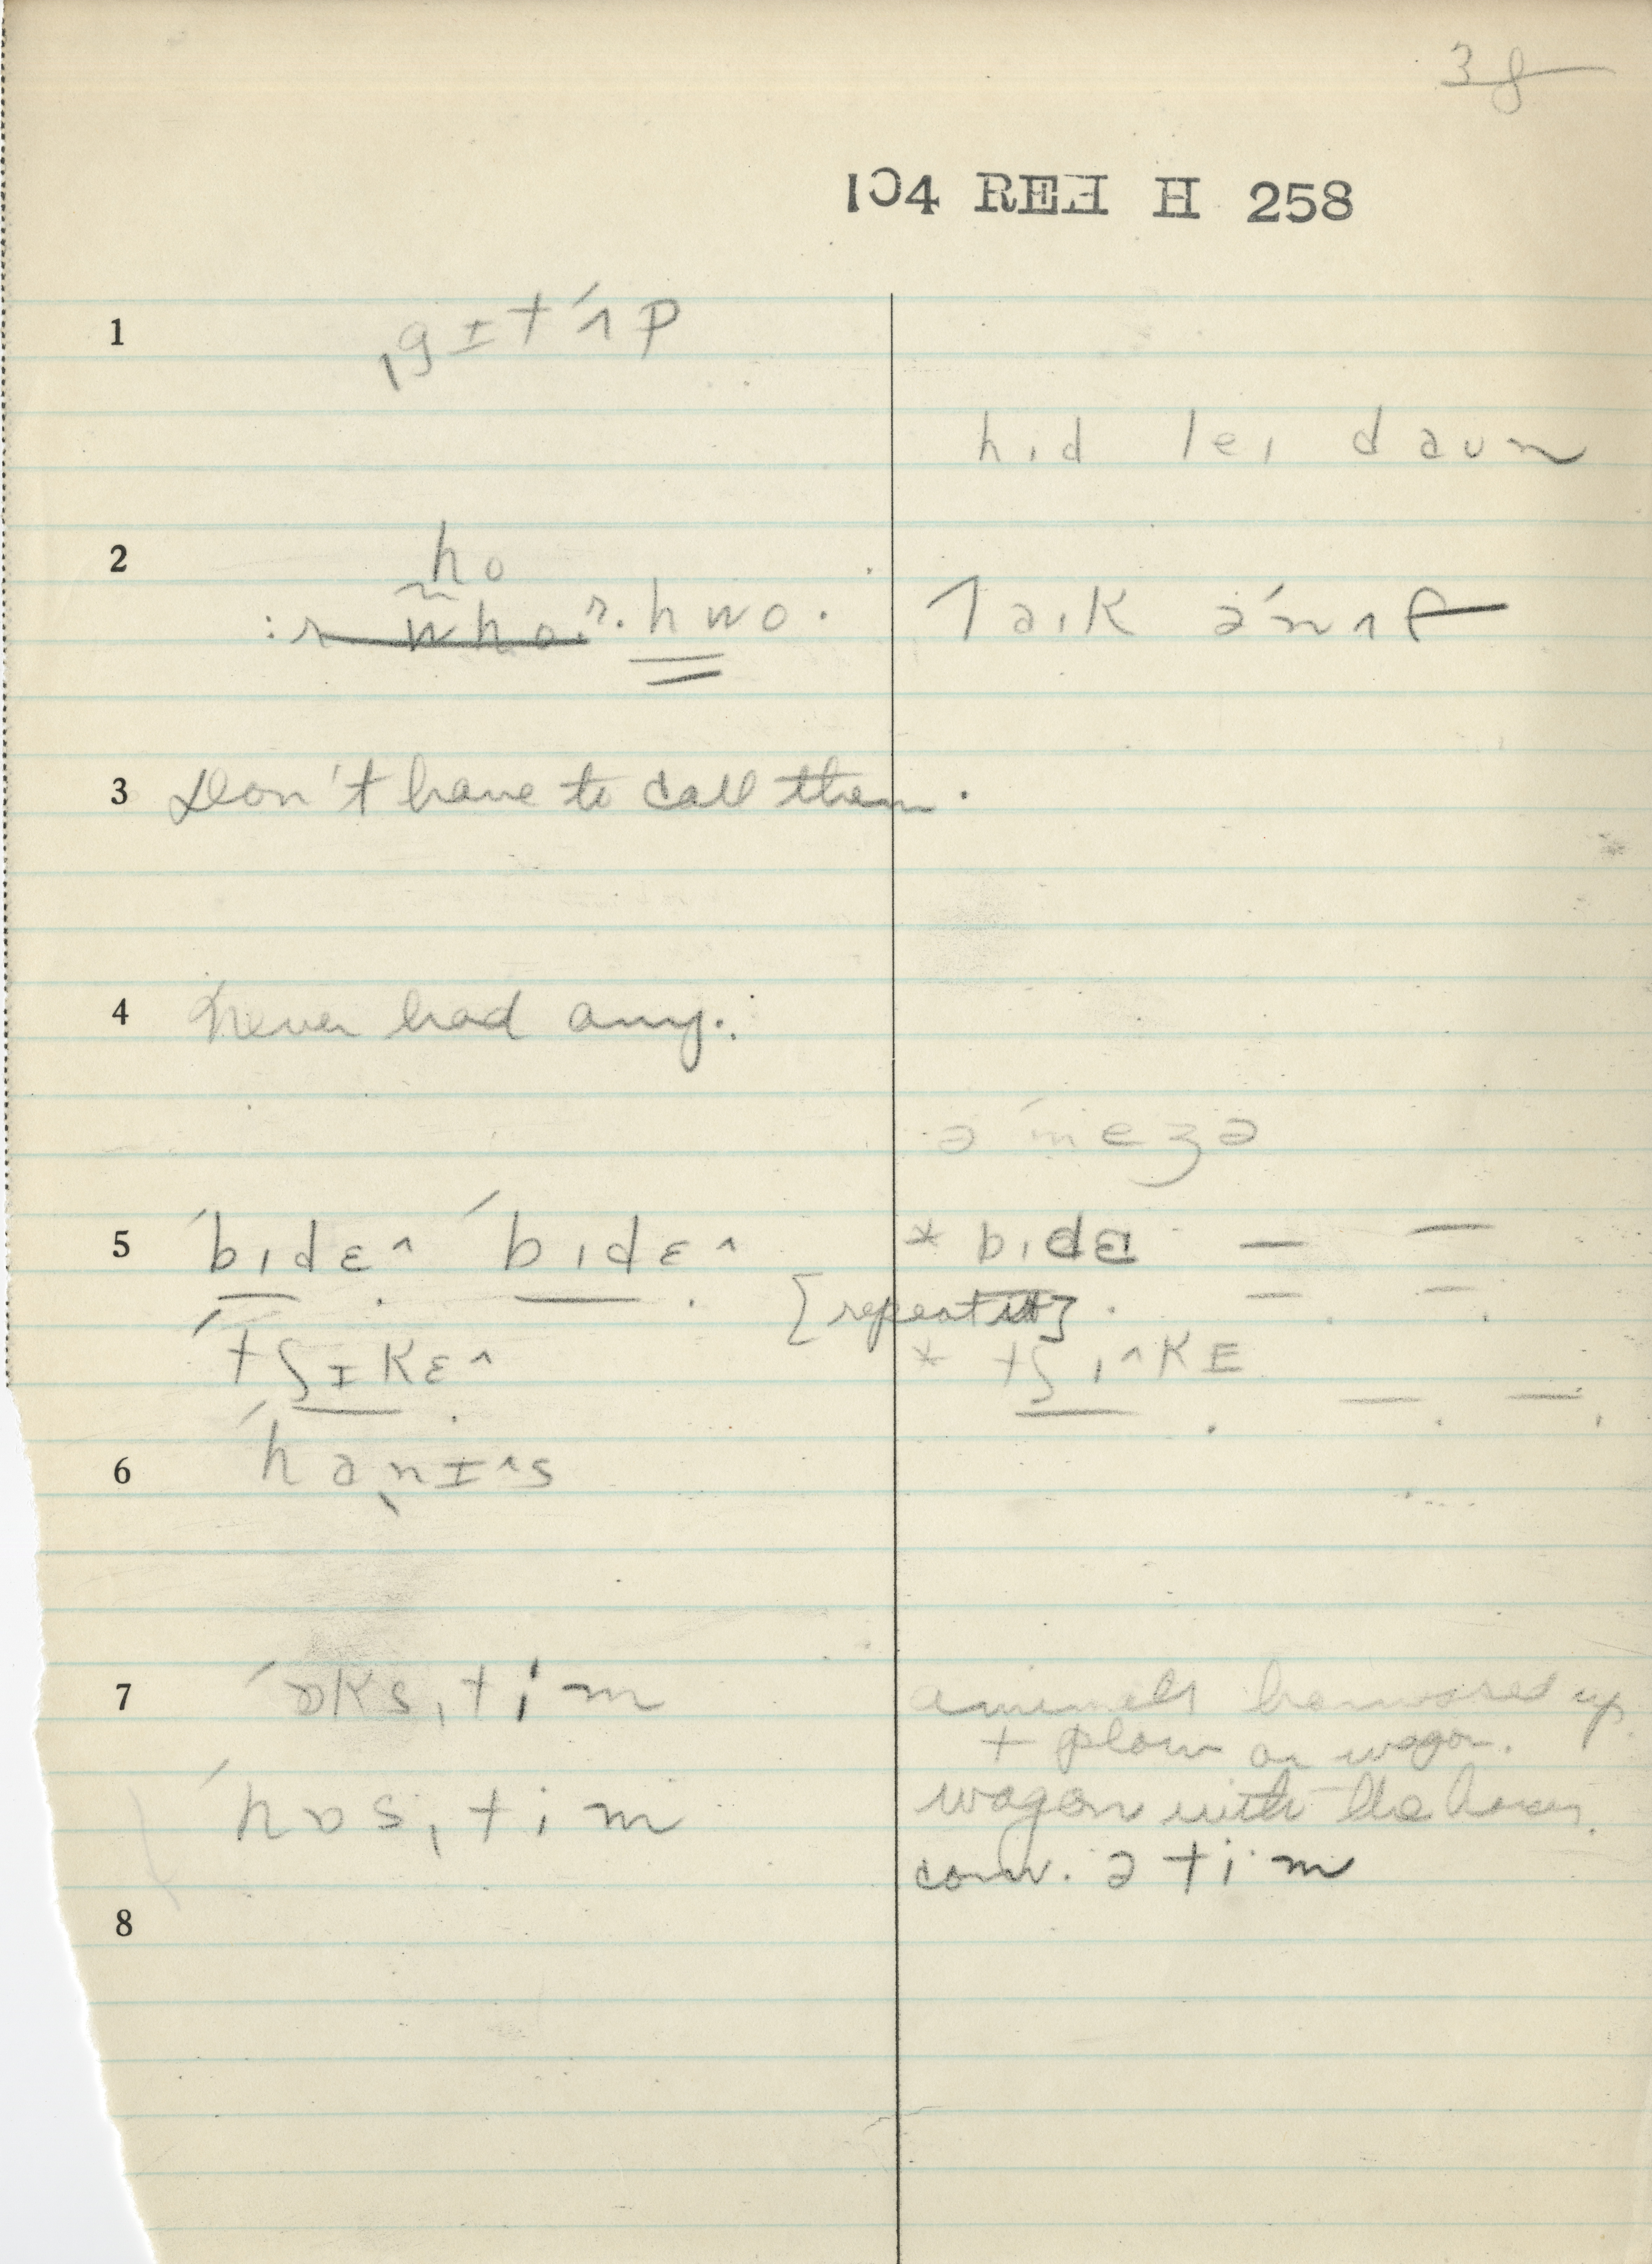 38
104 REH H 258
1 ˌgɪtˈʌp
hɪd leɪ daʊn
2 ho
hwo. laɪk ənˈʌf
3 Don't have to call them.
4 Never had any.
əˈmeʒə
5 ˈbɪdɛ^ ˈbɪdɛ^ * bɪdɛ — —
[repeat it]. — —
ˈtʃɪkɛ^ * tʃɪ^kɛ — —
6 ˈhɑnɪ^s
7 ˈɒksˌtim animals harnessed up
+ plow or wagon.
ˈhɒsˌtim wagon with the horses.
conv. ə tim
8